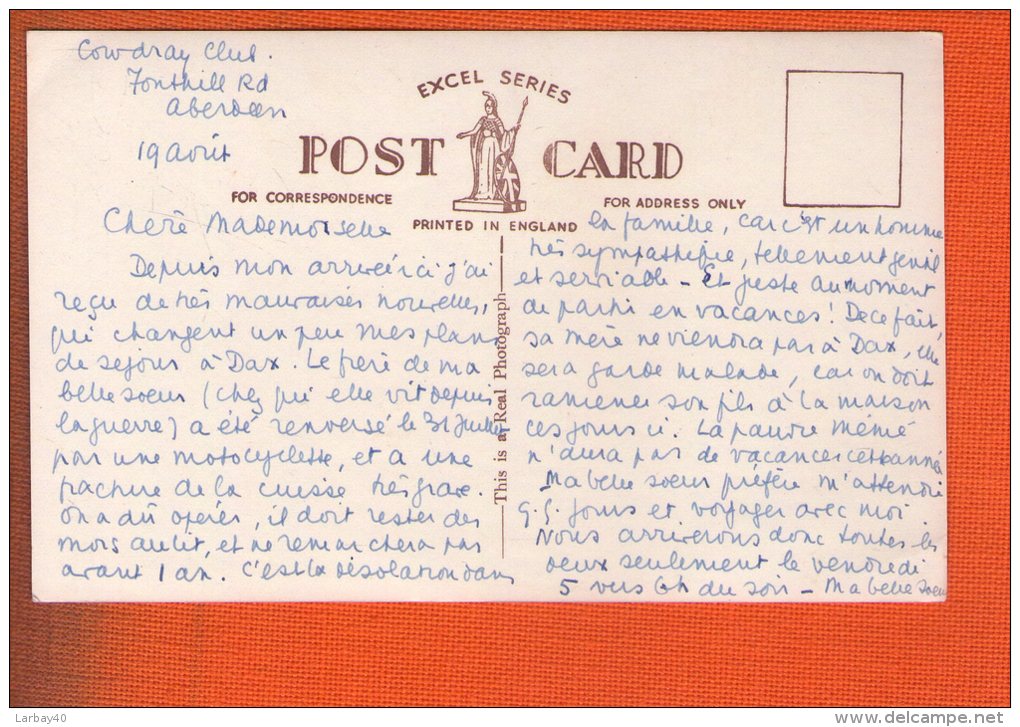 Cowdray Club.
Fonthill Rd
Aberdeen
19 août
EXCEL SERIES
POST CARD
FOR CORRESPONDENCE
FOR ADDRESS ONLY
PRINTED IN ENGLAND
This is a Real Photograph
Chère Mademoiselle
Depuis mon arrivée ici j'ai
reçu de très mauvaises nouvelles,
qui changent un peu mes plans
de sejour à Dax. Le frère de ma
belle soeur (chez qui elle vit depuis
la guerre) a été renversé le 31 Juillet
par une motocyclette, et a une
fracture de la cuisse très grave.
On a dû opérer, il doit rester des
mois au lit, et ne remarchera pas
avant 1 an. C'est la désolation dans
la famille, car c'est un homme
très sympathique, tellement gentil
et serviable - Et juste au moment
de partir en vacances! De ce fait,
sa mère ne viendra pas à Dax, elle
sera garde malade, car on doit
ramener son fils à la maison
ces jours ci. La pauvre Mémé
n'aura pas de vacances cette année
Ma belle soeur préfère m'attendre
q.q. jours et voyager avec moi.
Nous arriverons donc toutes les
deux seulement le vendredi
5 vers 6h du soir - Ma belle soeur
Larbay40
www.delcampe.net